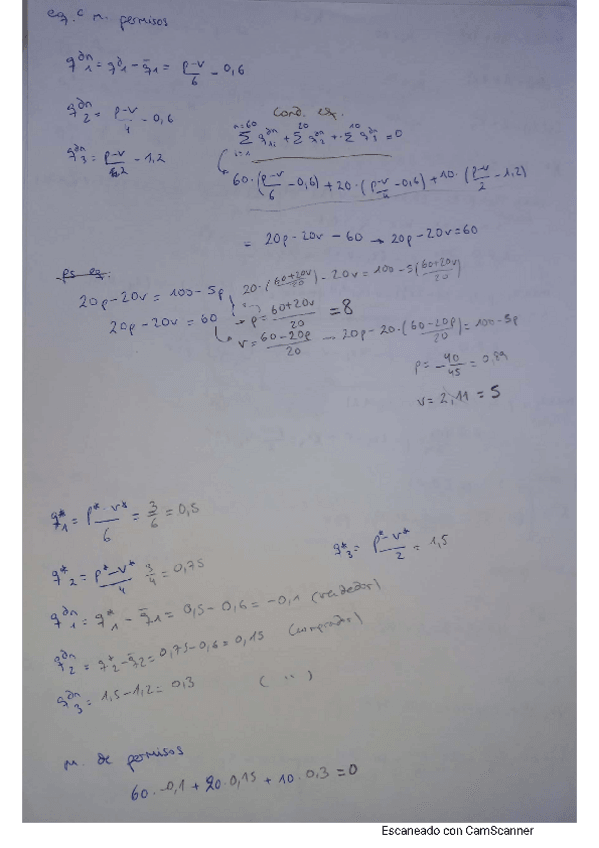 eq.º m. permisos
q₁^dn = q₁^d - q̄₁ = (p-v)/6 - 0,6
q₂^dn = (p-v)/4 - 0,6
q₃^dn = (p-v)/2 - 1,2
Cond. eq.
∑ q₁ᵢ^dn + ∑ q₂^dn + ∑ q₃^dn = 0
60·((p-v)/6 - 0,6) + 20·((p-v)/4 - 0,6) + 10·((p-v)/2 - 1,2)
= 20p - 20v - 60 → 20p - 20v = 60
ps eq.
20p - 20v = 100 - 5p
20·((60+20v)/20) - 20v = 100 - 5((60+20v)/20)
20p - 20v = 60 → p = (60+20v)/20 = 8
v = (60-20p)/20 → 20p - 20·((60-20p)/20) = 100 - 5p
p = -40/45 = 0,89
v = 2,11 = 5
q₁* = (p*-v*)/6 = 3/6 = 0,5
q₂* = (p*-v*)/4 = 3/4 = 0,75
q₃* = (p*-v*)/2 = 1,5
q₁^dn = q₁* - q̄₁ = 0,5 - 0,6 = -0,1 (vendedor)
q₂^dn = q₂* - q̄₂ = 0,75 - 0,6 = 0,15 (comprador)
q₃^dn = 1,5 - 1,2 = 0,3 ( '' )
M. de permisos
60·-0,1 + 20·0,15 + 10·0,3 = 0
Escaneado con CamScanner